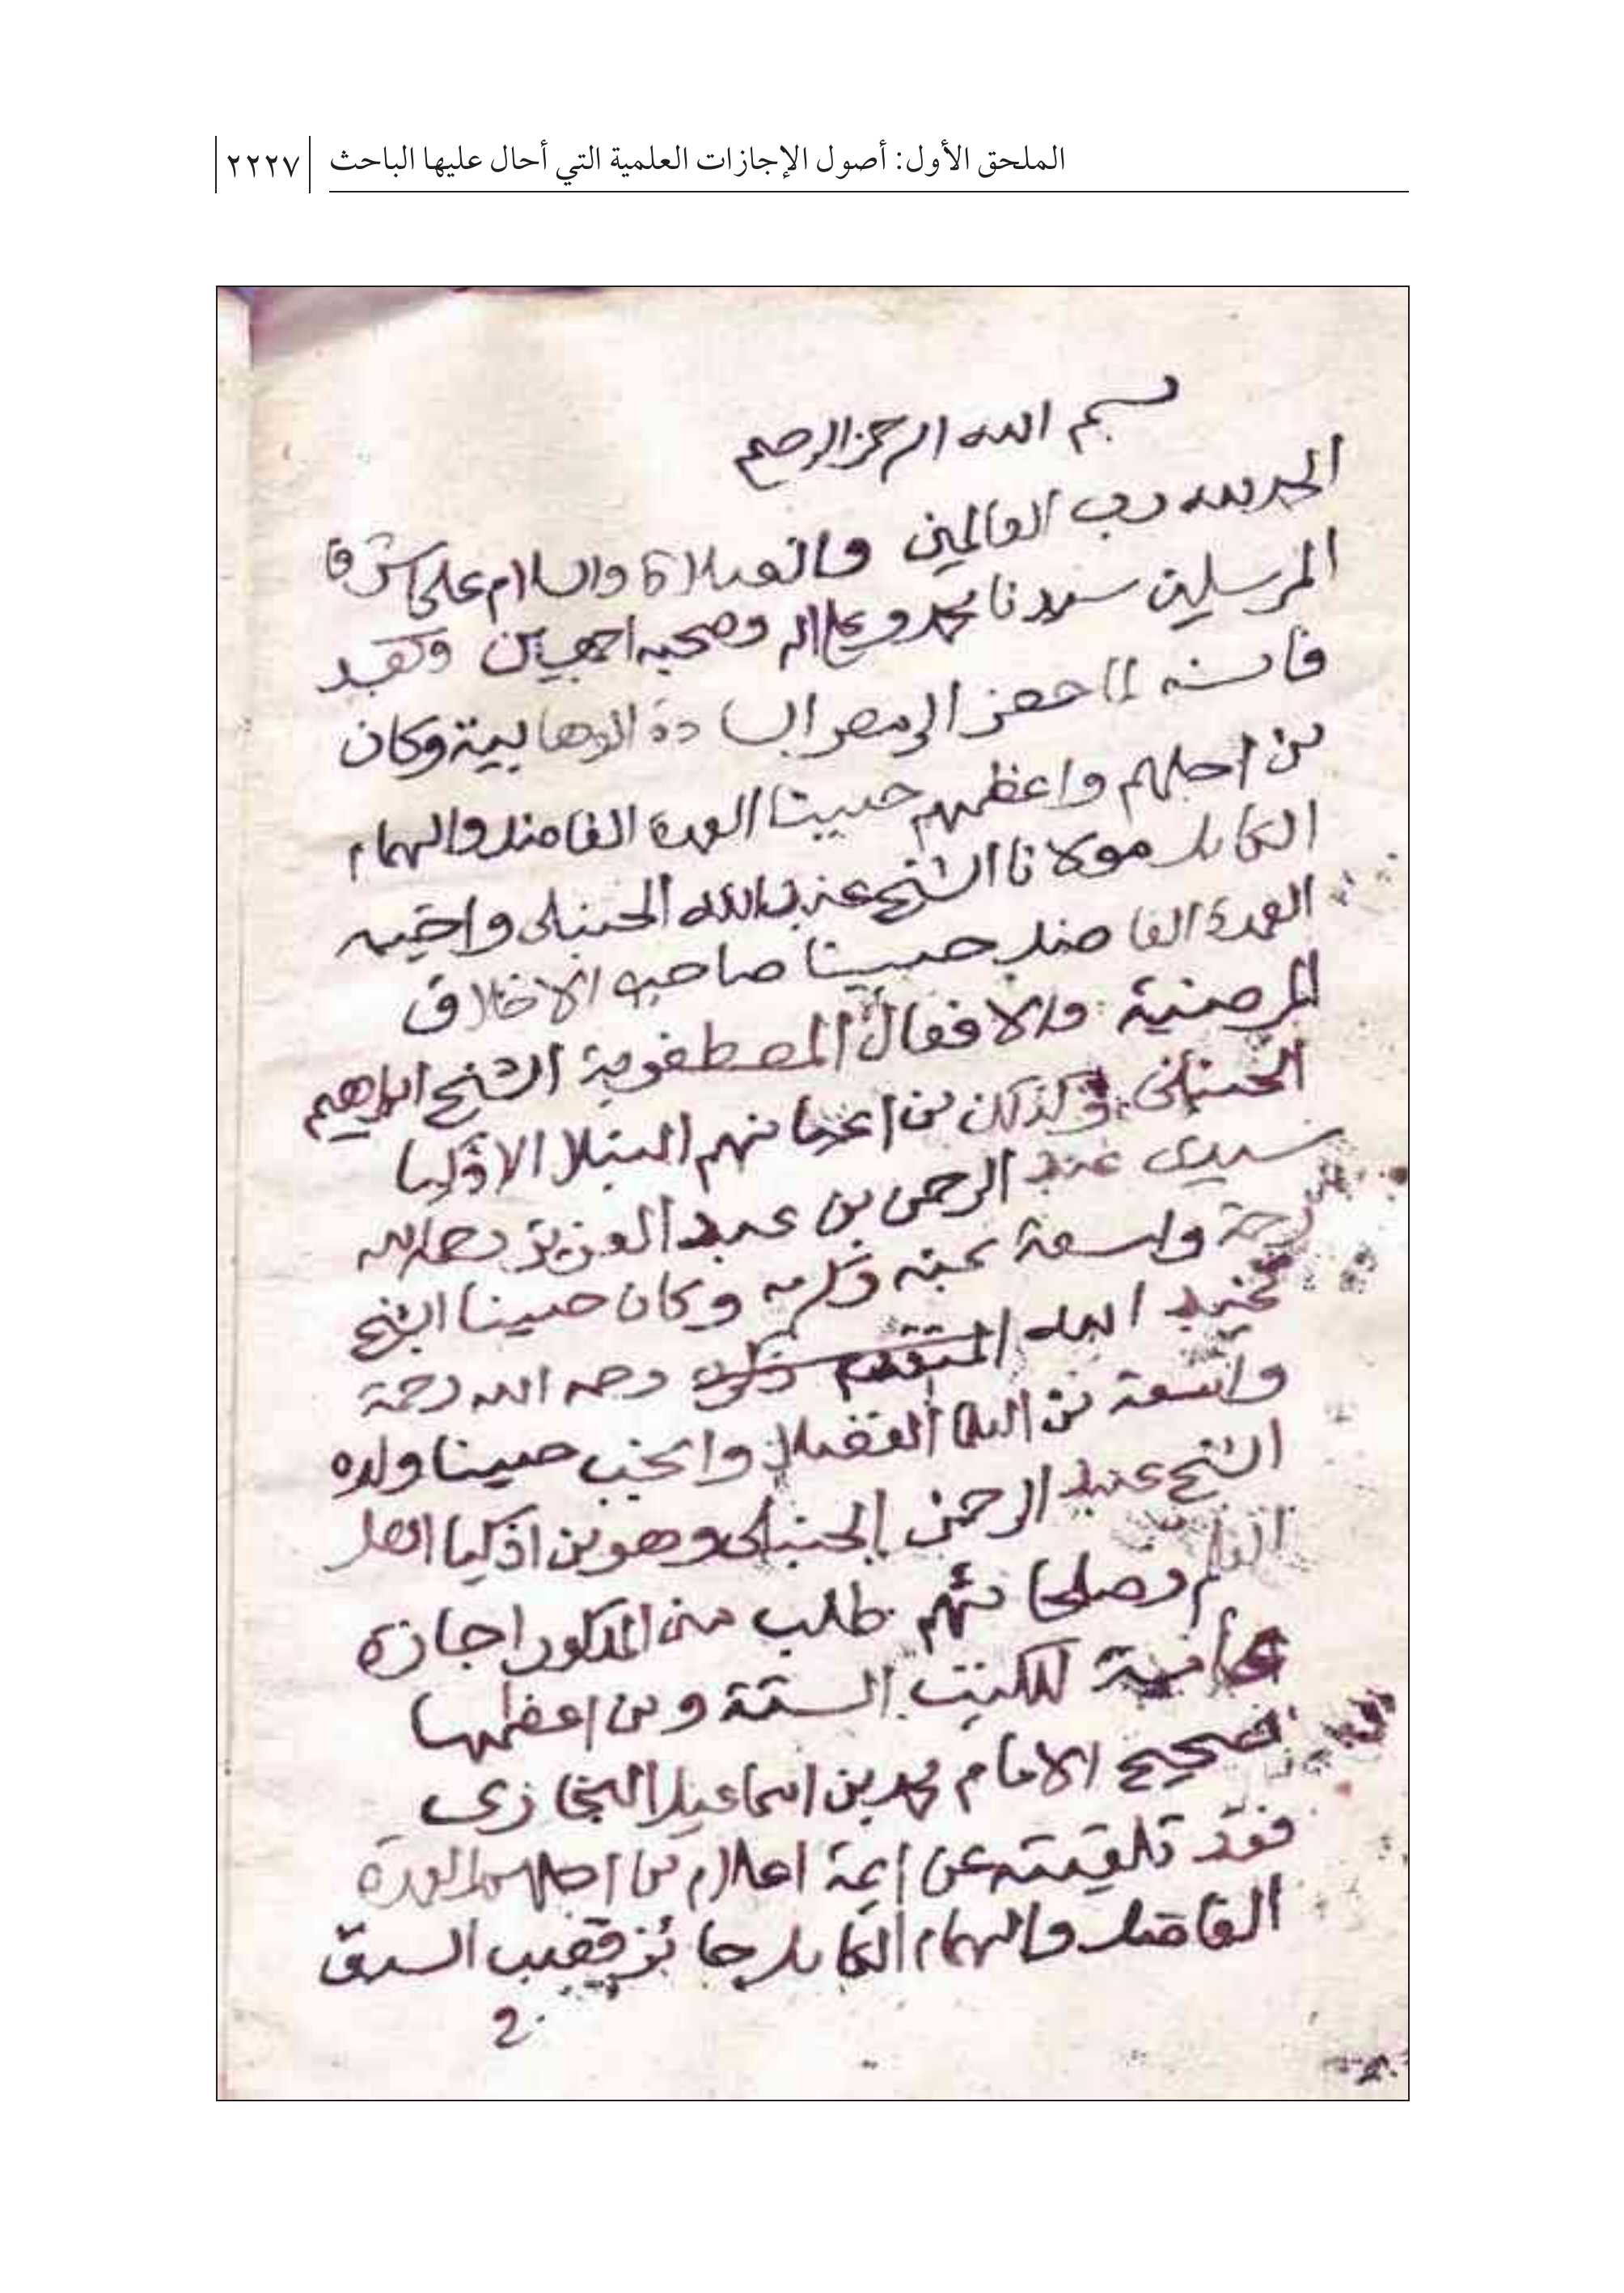 الملحق الأول: أصول الإجازات العلمية التي أحال عليها الباحث ٢٢٢٧
بسم الله الرحمن الرحيم
الحمد لله رب العالمين والصلاة والسلام على اشرف
المرسلين سيدنا محمد وعلى اله وصحبه اجمعين وبعد
فانه لما حضر الى مصر السادة الوهابية وكان
من اجلهم واعظمهم حبيبنا العمدة الفاضل والهمام
الكامل مولانا الشيخ عبد الله الحنبلى واخيه
العمدة الفاضل حبيبنا صاحب الاخلاق
المرضية والافعال المصطفوية الشيخ ابراهيم
الحنبلى وكذلك من اعيانهم النبلا الاوليا
سيدى عبد الرحمن بن عبد العزيز رحمه الله
رحمة واسعة بمنه وكرمه وكان حبيبنا الشيخ
عبد الله المتقدم رحمه الله رحمة
واسعة من اهل الفضل وانجب حبيبنا ولده
الشيخ عبد الرحمن الحنبلى وهو من اذكيا اهل
العلم وصلحائهم طلب منى المذكور اجازة
للكتب الستة ومن اعظمها
صحيح الامام محمد بن اسماعيل البخارى
فقد تلقيته عن ايمة اعلام من اجلهم العمدة
الفاضل والهمام الكامل حائز قصب السبق
2